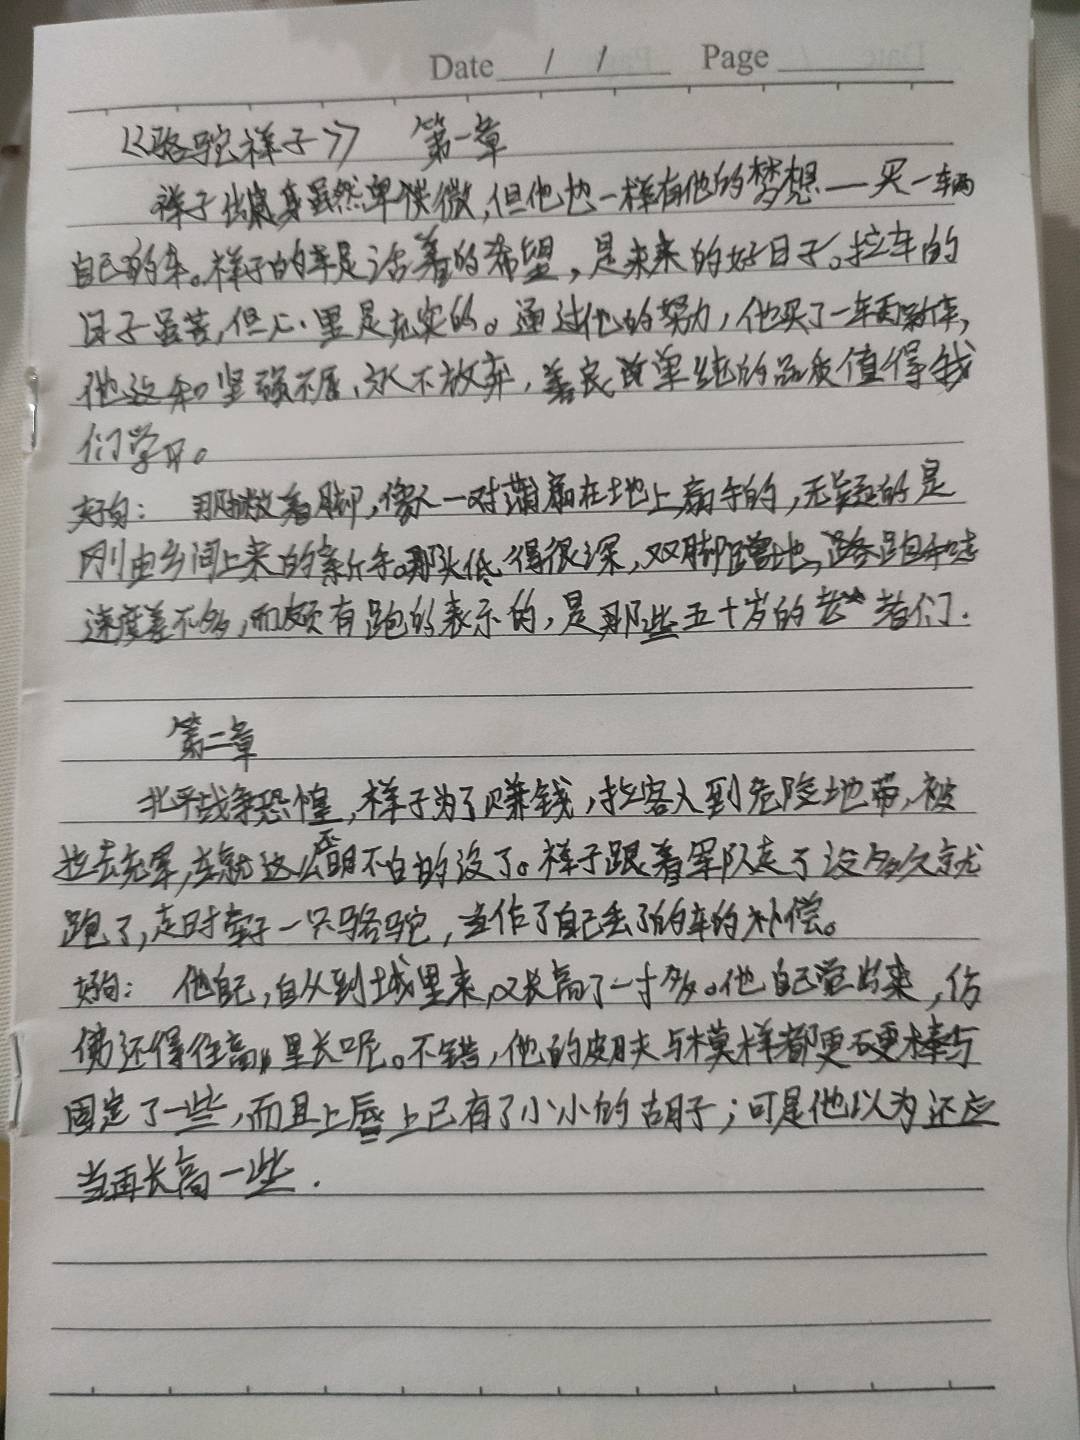 Date / / Page
《骆驼祥子》 第一章
祥子出身虽然卑微,但他也一样有他的梦想——买一辆
自己的车。祥子的车是活着的希望,是未来的好日子。拉车的
日子虽苦,但心里是充实的。通过他的努力,他买了一辆新车,
他这种坚强不屈、永不放弃,善良单纯的品质值得我
们学习。
好句: 那撇着脚,像一对蒲扇在地上扇乎的,无疑的是
刚由乡间上来的新手。那头低得很深,双脚蹭地,跑和走
速度差不多,而颇有跑的表示的,是那些五十岁的老者们.
第二章
北平战争恐惶,祥子为了赚钱,拉客人到危险地带,被
拉去充军,车就这么不明不白的没了。祥子跟着军队走了没多久就
跑了,走时牵了一只骆驼,当作了自己丢了的车的补偿。
好句: 他自己,自从到城里来,又长高了一寸多。他自己觉出来,仿
佛还得往高里长呢。不错,他的皮肤与模样都更硬棒与
固定了一些,而且上唇上已有了小小的胡子;可是他以为还应
当再长高一些.